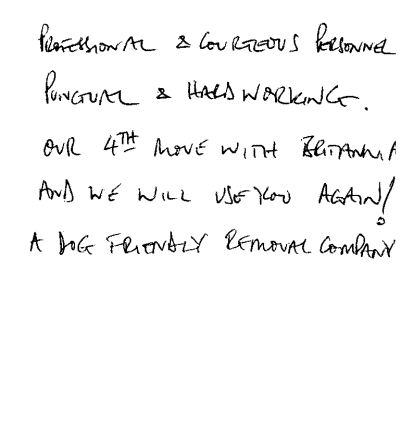 PROFESSIONAL & COURTEOUS PERSONNEL
PUNCTUAL & HARD WORKING.
OUR 4TH MOVE WITH BRITANNIA
AND WE WILL USE YOU AGAIN!
A DOG FRIENDLY REMOVAL COMPANY